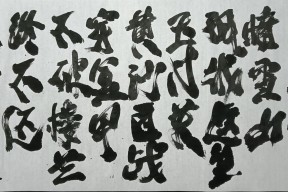 暗雪山
孤城遥望
玉门关
黄沙百战
穿金甲
不破楼兰
终不还